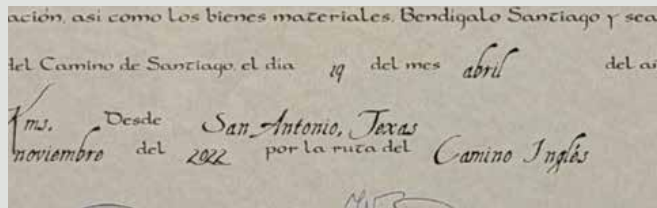 ación, así como los bienes materiales. Bendígalo Santiago y sea
del Camino de Santiago, el día 19 del mes abril del
Kms. Desde San Antonio, Texas
noviembre del 2022 por la ruta del Camino Inglés